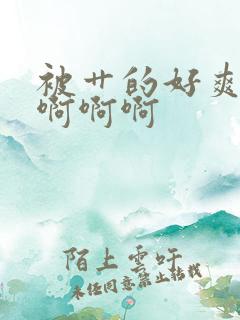 被艹的好爽
啊啊啊
陌上雲吁
未经同意禁止转载